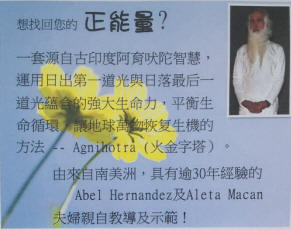 想找回您的 正能量?
一套源自古印度阿育吠陀智慧，
運用日出第一道光與日落最后一
道光蘊含的強大生命力，平衡生
命循環，讓地球萬物恢复生機的
方法 -- Agnihotra (火金字塔)。
由來自南美洲，具有逾30年經驗的
Abel Hernandez及Aleta Macan
夫婦親自教導及示範！